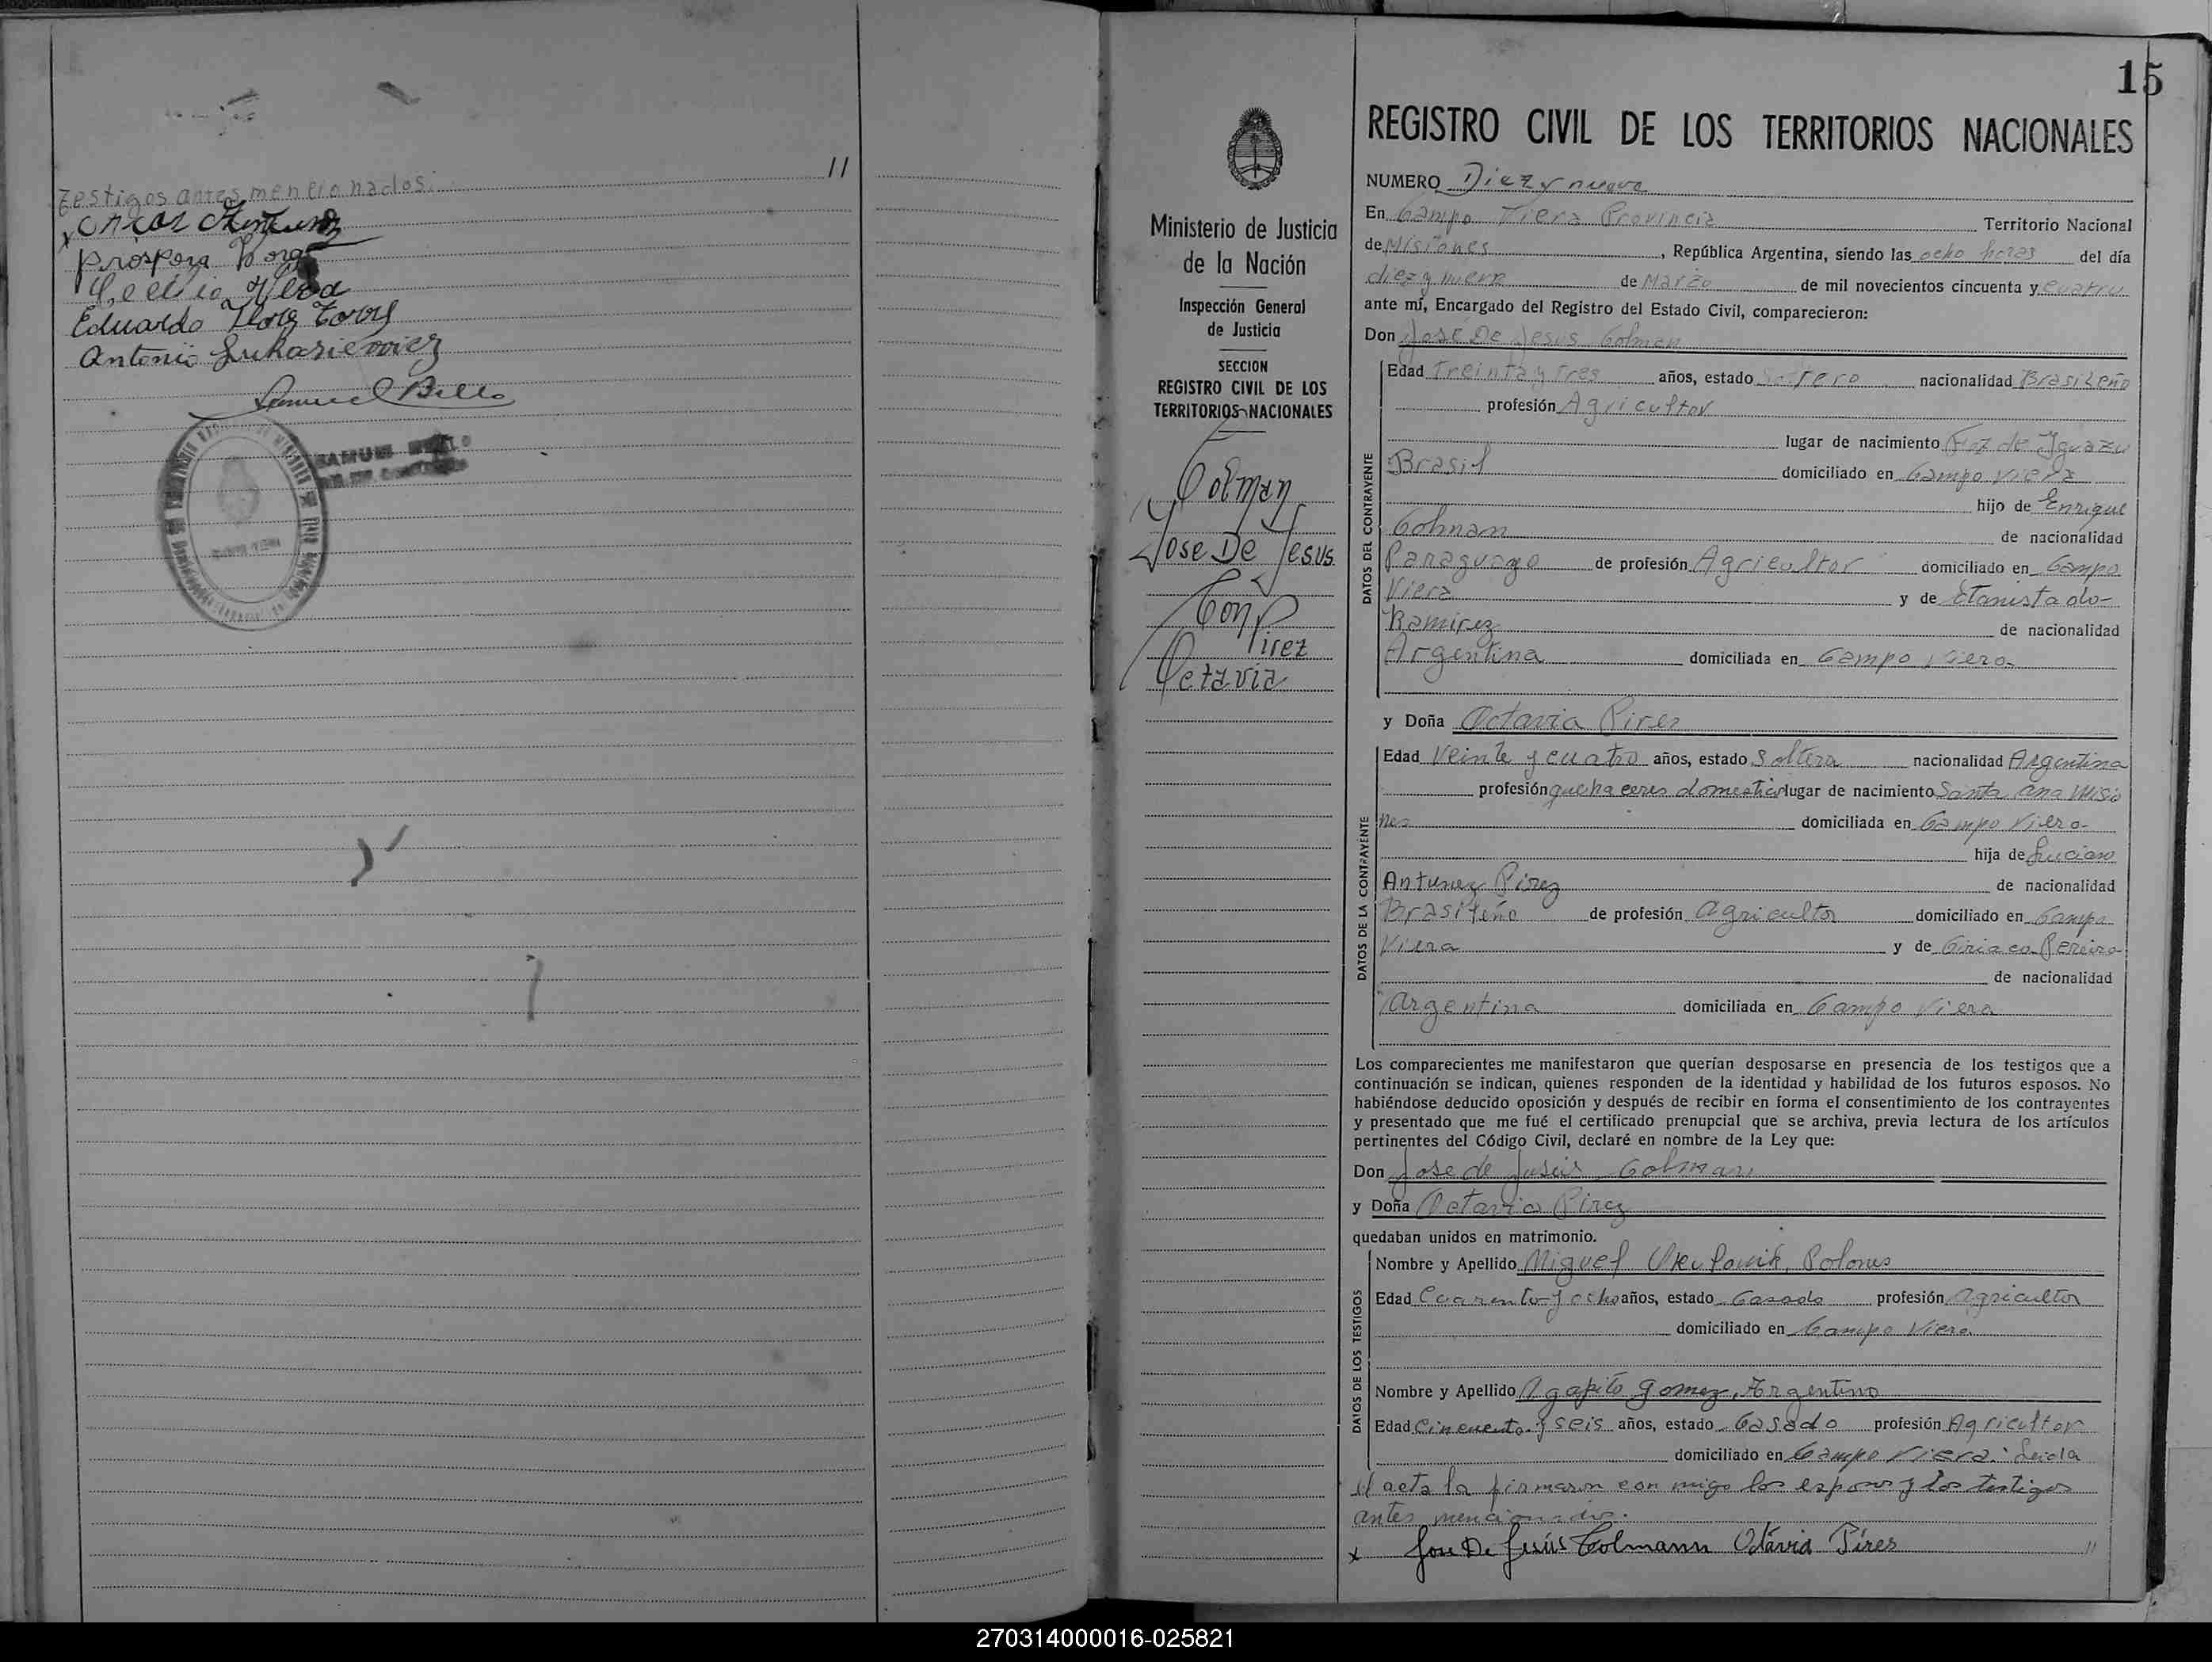 11
testigos antes mencionados.
x
Prospera
Cecilio Vera
Eduardo Flores Torres
Antonio Lukasievicz
Samuel Bello
SAMUEL BELLO
15
Ministerio de Justicia
de la Nación
Inspección General
de Justicia
SECCION
REGISTRO CIVIL DE LOS
TERRITORIOS NACIONALES
Colman
Jose De Jesus
Con
Pirez
Octavia
REGISTRO CIVIL DE LOS TERRITORIOS NACIONALES
NUMERO Diez y nueve
En Campo Viera Provincia Territorio Nacional
de Misiones, República Argentina, siendo las ocho horas del día
diez y nueve de Marzo de mil novecientos cincuenta y cuatro
ante mí, Encargado del Registro del Estado Civil, comparecieron:
Don José De Jesus Colman
DATOS DEL CONTRAYENTE
Edad Treinta y tres años, estado Soltero nacionalidad Brasileño
profesión Agricultor
lugar de nacimiento Foz de Iguazu
Brasil domiciliado en Campo Viera
hijo de Enrique
Colman de nacionalidad
Paraguayo de profesión Agricultor domiciliado en Campo
Viera y de Etanislada
Ramirez de nacionalidad
Argentina domiciliada en Campo Viera
y Doña Octavia Pires
DATOS DE LA CONTRAYENTE
Edad Veinte y cuatro años, estado Soltera nacionalidad Argentina
profesión quehaceres domestico lugar de nacimiento Santa Ana Misio
nes domiciliada en Campo Viera
hija de Luciano
Antunez Pirez de nacionalidad
Brasileño de profesión Agricultor domiciliado en Campo
Viera y de Ciriaca Pereira
de nacionalidad
Argentina domiciliada en Campo Viera
Los comparecientes me manifestaron que querían desposarse en presencia de los testigos que a
continuación se indican, quienes responden de la identidad y habilidad de los futuros esposos. No
habiéndose deducido oposición y después de recibir en forma el consentimiento de los contrayentes
y presentado que me fué el certificado prenupcial que se archiva, previa lectura de los artículos
pertinentes del Código Civil, declaré en nombre de la Ley que:
Don Jose de Jesús Colman
y Doña Octavia Pirez
quedaban unidos en matrimonio.
DATOS DE LOS TESTIGOS
Nombre y Apellido Miguel Polones
Edad Cuarenta y ocho años, estado Casado profesión Agricultor
domiciliado en Campo Viera
Nombre y Apellido Agapito Gomez, Argentino
Edad Cincuenta y seis años, estado Casado profesión Agricultor
domiciliado en Campo Viera. Leida
el acta la firmaron con migo los esposos y los testigos
antes mencionados.
x Jose De Jesús Colmann Otávia Píres 11
270314000016-025821